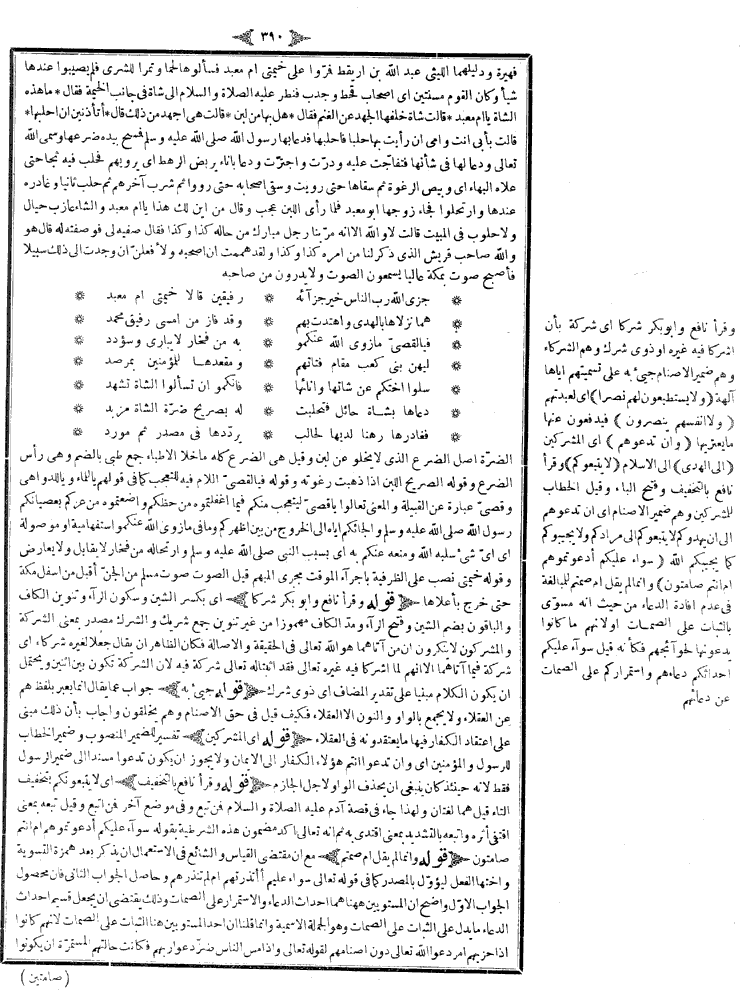 ٣٩٠
فهيرة ودليلهما الليثى عبد الله بن اريقط فرّوا على خيمتى ام معبد فسألوها لحما وتمرا للشرى فلم يصيبوا عندها
شيأ وكان القوم مسنتين اى اصحاب قحط وجدب فنظر عليه الصلاة والسلام الى شاة فى جانب الخيمة فقال * ماهذه
الشاة ياام معبد * قالت شاة خلفها الجهد عن الغنم فقال * هل بها من لبن * قالت هى اجهد من ذلك قال * أتأذنين ان احلبها *
قالت بأبى انت وامى ان رأيت بها حلبا فاحلبها فدعا بها رسول الله صلى الله عليه وسلم فمسح بيده ضرعها وسمى الله
تعالى ودعا لها فى شأنها فتفاجت عليه ودرت واجترّت ودعا باناء يربض الرهط اى يرويهم فحلب فيه ثجا حتى
علاه البهاء اى وبيص الرغوة ثم سقاها حتى رويت وسقى اصحابه حتى رووا ثم شرب آخرهم ثم حلب ثانيا وغادره
عندها وارتحلوا فجاء زوجها ابو معبد فلما رأى اللبن عجب وقال من اين لك هذا ياام معبد والشاء عازب حيال
ولا حلوب فى المبيت قالت لا والله الا انه مرّ بنا رجل مبارك من حاله كذا وكذا فقال صفيه لى فوصفته له قال هو
والله صاحب قريش الذى ذكر لنا من امره كذا وكذا ولقد هممت ان اصحبه ولأفعلنّ ان وجدت الى ذلك سبيلا
فأصبح صوت بمكة عاليا يسمعون الصوت ولا يدرون من صاحبه
* جزى الله رب الناس خير جزآئه * رفيقين قالا خيمتى ام معبد *
* هما نزلاها بالهدى واهتدت بهم * وقد فاز من امسى رفيق محمد *
* فيالقصىّ مازوى الله عنكمو * به من فخار لايبارى وسؤدد *
* ليهن بنى كعب مقام فتاتهم * ومقعدها للمؤمنين بمرصد *
* سلوا اختكم عن شاتها وانائها * فانكمو ان تسألوا الشاة تشهد *
* دعاها بشاة حائل فتحلبت * له بصريح ضرّة الشاة مزبد *
* فغادرها رهنا لديها لحالب * يردّدها فى مصدر ثم مورد *
الضرّة اصل الضرع الذى لايخلو عن لبن وقيل هى الضرع كله ماخلا الاطباء جمع طبى بالضم وهى رأس
الضرع وقوله الصريح اللبن اذا ذهبت رغوته وقوله فيالقصىّ اللام فيه للتعجب كما فى قولهم ياللماء وياللدواهى
وقصىّ عبارة عن القبيلة والمعنى تعالوا ياقصىّ ليتعجب منكم فيما اغفلتموه من حظكم واضعتموه من عزكم بعصيانكم
رسول الله صلى الله عليه وسلم والجائكم اياه الى الخروج من بين اظهركم وما فى مازوى الله عنكمو استفهامية او موصولة
اى اىّ شئ سلبه الله ومنعه عنكم به اى بسبب النبى صلى الله عليه وسلم وارتحاله من فخار لا يقابل ولا يعارض
وقوله خيمتى نصب على الظرفية باجرآء الموقت مجرى المبهم قيل الصوت صوت مسلم من الجنّ أقبل من اسفل مكة
حتى خرج بأعلاها ﴿ قوله وقرأ نافع وابو بكر شركا ﴾ اى بكسر الشين وسكون الرآء وتنوين الكاف
والباقون بضم الشين وفتح الرآء ومدّ الكاف مهموزا من غير تنوين جمع شريك والشرك مصدر بمعنى الشركة
والمشركون لاينكرون ان من آتاهما هو الله تعالى فى الحقيقة والاصالة فكان الظاهر ان يقال جعلا لغيره شركاء اى
شركة فيما آتاهما الا انهم لما اشركا فيه غيره تعالى فقد اثبتا له تعالى شركة فيه لان الشركة تكون بين اثنين ويحتمل
ان يكون الكلام مبنيا على تقدير المضاف اى ذوى شرك ﴿ قوله جيئ به ﴾ جواب عما يقال انما يعبر بلفظ هم
عن العقلاء ولا يجمع بالواو والنون الا العقلاء فكيف قيل فى حق الاصنام وهم يخلقون واجاب بأن ذلك مبنى
على اعتقاد الكفار فيها ما يعتقدونه فى العقلاء ﴿ قوله اى المشركين ﴾ تفسير للضمير المنصوب وضمير الخطاب
للرسول والمؤمنين اى وان تدعوا انتم هؤلاء الكفار الى الايمان ولا يجوز ان يكون تدعوا مسندا الى ضمير الرسول
فقط لانه حينئذ كان ينبغى ان يحذف الواو لاجل الجازم ﴿ قوله وقرأ نافع بالتخفيف ﴾ اى لا يتبعونكم بتخفيف
التاء قيل هما لغتان ولهذا جاء فى قصة آدم عليه الصلاة والسلام فمن تبع وفى موضع آخر فمن اتبع وقيل تبعه بمعنى
اقتفى أثره واتبعه بالتشديد بمعنى اقتدى به ثم انه تعالى اكد مضمون هذه الشرطية بقوله سوآء عليكم أدعوتموهم ام انتم
صامتون ﴿ قوله وانما لم يقل ام صمتم ﴾ مع ان مقتضى القياس والشائع فى الاستعمال ان يذكر بعد همزة التسوية
واختها الفعل ليؤوّل بالمصدر كما فى قوله تعالى سوآء عليهم أأنذرتهم ام لم تنذرهم وحاصل الجواب الثانى فان محصول
الجواب الاوّل واضح ان المستويين ههنا هما احداث الدعاء والاستمرار على الصمات وذلك يقتضى ان يجعل قسيم احداث
الدعاء ما يدل على الثبات على الصمات وهو الجملة الاسمية وانما قلنا ان احد المستويين هنا الثبات على الصمات لانهم كانوا
اذا حزبهم امر دعوا الله تعالى دون اصنامهم لقوله تعالى واذا مس الناس ضرّ دعوا ربهم فكانت حالتهم المستمرّة ان يكونوا
( صامتين )
وقرأ نافع وابو بكر شركا اى شركة بأن
اشركا فيه غيره او ذوى شرك وهم الشركاء
وهم ضمير الاصنام جيئ به على تسميتهم اياها
آلهة (ولا يستطيعون لهم نصرا) اى لعبدتهم
(ولا انفسهم ينصرون) فيدفعون عنها
ما يعتريها (وان تدعوهم) اى المشركين
(الى الهدى) الى الاسلام (لا يتبعوكم) وقرأ
نافع بالتخفيف وفتح الباء وقيل الخطاب
للمشركين وهم ضمير الاصنام اى ان تدعوهم
الى ان يهدوكم لا يتبعوكم الى مرادكم ولا يجيبوكم
كما يجيبكم الله (سواء عليكم أدعوتموهم
ام انتم صامتون) وانما لم يقل ام صمتم للمبالغة
فى عدم افادة الدعاء من حيث انه مسوّى
بالثبات على الصمات او لانهم ما كانوا
يدعونها لحوآئجهم فكأنه قيل سوآء عليكم
احداثكم دعاءهم واستمراركم على الصمات
عن دعائهم